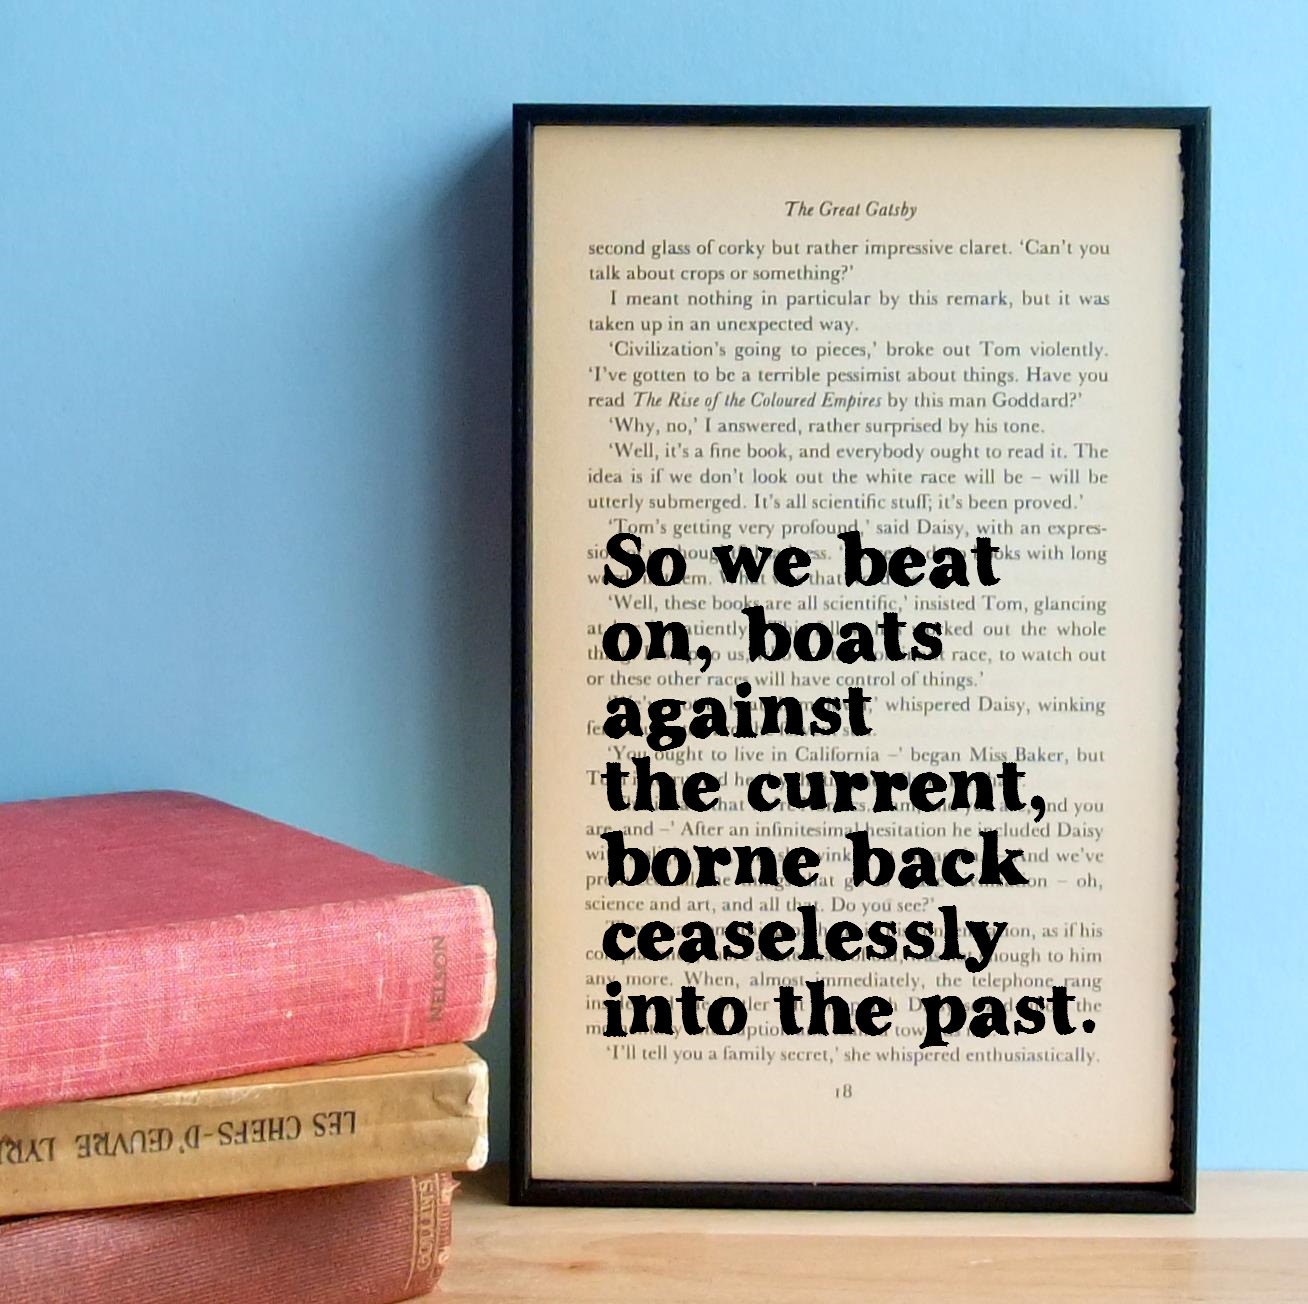 The Great Gatsby
second glass of corky but rather impressive claret. ‘Can’t you
talk about crops or something?’
I meant nothing in particular by this remark, but it was
taken up in an unexpected way.
‘Civilization’s going to pieces,’ broke out Tom violently.
‘I’ve gotten to be a terrible pessimist about things. Have you
read The Rise of the Coloured Empires by this man Goddard?’
‘Why, no,’ I answered, rather surprised by his tone.
‘Well, it’s a fine book, and everybody ought to read it. The
idea is if we don’t look out the white race will be – will be
utterly submerged. It’s all scientific stuff; it’s been proved.’
‘Tom’s getting very profound,’ said Daisy, with an expres-
with long
‘Well, these books are all scientific,’ insisted Tom, glancing
out the whole
race, to watch out
or these other races will have control of things.’
whispered Daisy, winking
‘You ought to live in California –’ began Miss Baker, but
and you
are, and –’ After an infinitesimal hesitation he included Daisy
and we’ve
– oh,
science and art, and all that. Do you see?’
as if his
to him
any more. When, almost immediately, the telephone rang
the
‘I’ll tell you a family secret,’ she whispered enthusiastically.
18
So we beat
on, boats
against
the current,
borne back
ceaselessly
into the past.
NELSON
LES CHEFS-D’ŒUVRE
COLLINS